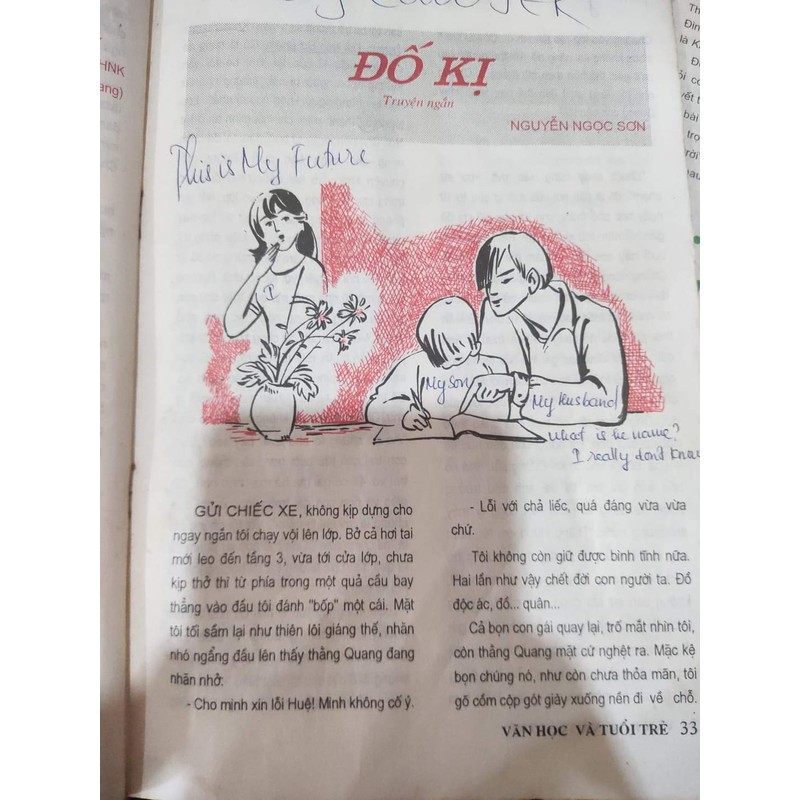 ĐỐ KỊ
Truyện ngắn
NGUYỄN NGỌC SƠN
This is My Future
I
My son
My Husband
What is he name?
I really don't know
GỬI CHIẾC XE, không kịp dựng cho
ngay ngắn tôi chạy vội lên lớp. Bở cả hơi tai
mới leo đến tầng 3, vừa tới cửa lớp, chưa
kịp thở thì từ phía trong một quả cầu bay
thẳng vào đầu tôi đánh "bốp" một cái. Mặt
tôi tối sầm lại như thiên lôi giáng thế, nhăn
nhó ngẩng đầu lên thấy thằng Quang đang
nhăn nhở:
- Cho mình xin lỗi Huệ! Mình không cố ý.
- Lỗi với chả liếc, quá đáng vừa vừa
chứ.
Tôi không còn giữ được bình tĩnh nữa.
Hai lần như vậy chết đời con người ta. Đồ
độc ác, đồ... quân...
Cả bọn con gái quay lại, trố mắt nhìn tôi,
còn thằng Quang mặt cứ nghệt ra. Mặc kệ
bọn chúng nó, như còn chưa thỏa mãn, tôi
gõ cồm cộp gót giày xuống nền đi về chỗ.
VĂN HỌC VÀ TUỔI TRẺ 33
HNK
ang)